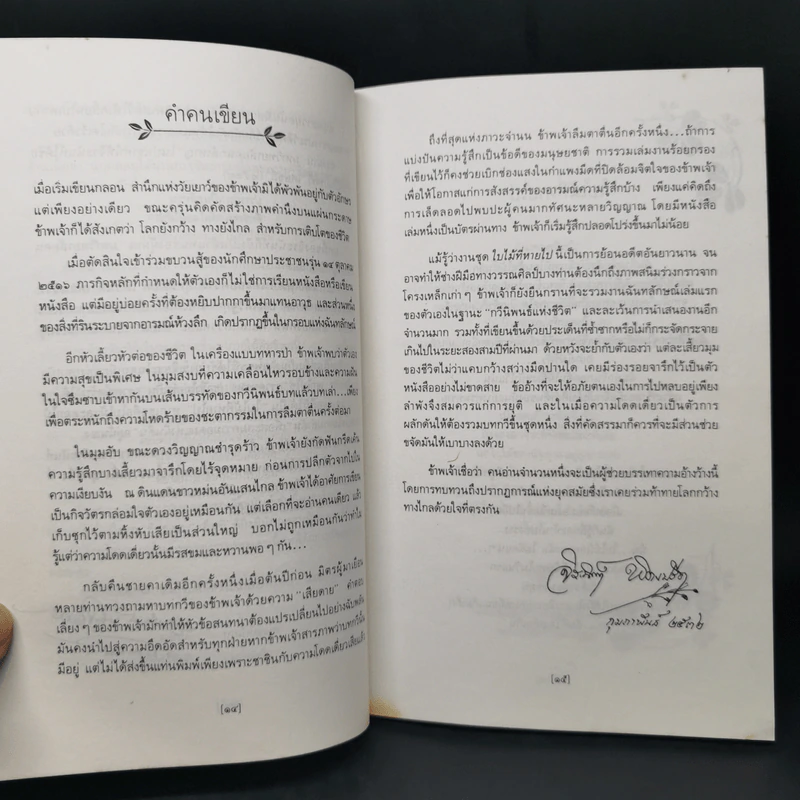 คำคนเขียน
เมื่อเริ่มเขียนกลอน สำนึกแห่งวัยเยาว์ของข้าพเจ้ามิได้พัวพันอยู่กับตัวอักษร
แต่เพียงอย่างเดียว ขณะครุ่นคิดคัดสร้างภาพคำนึงบนแผ่นกระดาษ
ข้าพเจ้าก็ได้สังเกตว่า โลกยังกว้าง ทางยังไกล สำหรับการเติบโตของชีวิต
เมื่อตัดสินใจเข้าร่วมขบวนสู้ของนักศึกษาประชาชนรุ่น ๑๔ ตุลาคม
๒๕๑๖ ภารกิจหลักที่กำหนดให้ตัวเองก็ไม่ใช่การเรียนหนังสือหรือเขียน
หนังสือ แต่มีอยู่บ่อยครั้งที่ต้องหยิบปากกาขึ้นมาแทนอาวุธ และส่วนหนึ่ง
ของสิ่งที่รินระบายจากอารมณ์ห้วงลึก เกิดปรากฏขึ้นในกรอบแห่งฉันทลักษณ์
อีกหัวเลี้ยวหัวต่อของชีวิต ในเครื่องแบบทหารป่า ข้าพเจ้าพบว่าตัวเอง
มีความสุขเป็นพิเศษ ในมุมสงบที่ความเคลื่อนไหวรอบข้างและความฝัน
ในใจซึมซาบเข้าหากันบนเส้นบรรทัดของกวีนิพนธ์บทแล้วบทเล่า...เพียง
เพื่อตระหนักถึงความโหดร้ายของชะตากรรมในการลืมตาตื่นครั้งต่อมา
ในมุมอับ ขณะดวงวิญญาณชำรุดร้าว ข้าพเจ้ายังกัดฟันกรีดเค้น
ความรู้สึกบางเสี้ยวมาจารึกโดยไร้จุดหมาย ก่อนการปลีกตัวจากไปใน
ความเงียบงัน ณ ดินแดนชาวหม่นอันแสนไกล ข้าพเจ้าได้อาศัยการเขียน
เป็นกิจวัตรกล่อมใจตัวเองอยู่เหมือนกัน แต่เลือกที่จะอ่านคนเดียว แล้ว
เก็บซุกไว้ตามหิ้งหับเสียเป็นส่วนใหญ่ บอกไม่ถูกเหมือนกันว่าทำไม
รู้แต่ว่าความโดดเดี่ยวนั้นมีรสขมและหวานพอๆ กัน...
กลับคืนชายคาเดิมอีกครั้งหนึ่งเมื่อต้นปีก่อน มิตรผู้มาเยือน
หลายท่านทวงถามหาบทกวีของข้าพเจ้าด้วยความ "เสียดาย" คำตอบ
เลี่ยงๆ ของข้าพเจ้ามักทำให้หัวข้อสนทนาต้องแปรเปลี่ยนไปอย่างฉับพลัน
มันคงนำไปสู่ความอึดอัดสำหรับทุกฝ่ายหากข้าพเจ้าสารภาพว่าบทกวีนั้น
มีอยู่ แต่ไม่ได้ส่งขึ้นแท่นพิมพ์เพียงเพราะชาชินกับความโดดเดี่ยวเสียแล้ว
[๑๔]
ถึงที่สุดแห่งภาวะจำนน ข้าพเจ้าลืมตาตื่นอีกครั้งหนึ่ง...ถ้าการ
แบ่งปันความรู้สึกเป็นข้อดีของมนุษยชาติ การรวมเล่มงานร้อยกรอง
ที่เขียนไว้ก็คงช่วยเบิกช่องแสงในกำแพงมืดที่ปิดล้อมจิตใจของข้าพเจ้า
เพื่อให้โอกาสแก่การสังสรรค์ของอารมณ์ความรู้สึกบ้าง เพียงแค่คิดถึง
การเล็ดลอดไปพบปะผู้คนมากทัศนะหลายวิญญาณ โดยมีหนังสือ
เล่มหนึ่งเป็นบัตรผ่านทาง ข้าพเจ้าก็เริ่มรู้สึกปลอดโปร่งขึ้นมาไม่น้อย
แม้รู้ว่างานชุด ใบไม้ที่หายไป นี้เป็นการย้อนอดีตอันยาวนาน จน
อาจทำให้ช่างฝีมือทางวรรณศิลป์บางท่านต้องนึกถึงภาพสนิมร่วงกราวจาก
โครงเหล็กเก่าๆ ข้าพเจ้าก็ยังยืนกรานที่จะรวมงานฉันทลักษณ์เล่มแรก
ของตัวเองในฐานะ "กวีนิพนธ์แห่งชีวิต" และละเว้นการนำเสนองานอีก
จำนวนมาก รวมทั้งที่เขียนขึ้นด้วยประเด็นที่ซ้ำซากหรือไม่ก็กระจัดกระจาย
เกินไปในระยะสองสามปีที่ผ่านมา ด้วยหวังจะย้ำกับตัวเองว่า แต่ละเสี้ยวมุม
ของชีวิตไม่ว่าแคบกว้างสว่างมืดปานใด เคยมีร่องรอยจารึกไว้เป็นตัว
หนังสืออย่างไม่ขาดสาย ข้ออ้างที่จะให้อภัยตนเองในการไปหลบอยู่เพียง
ลำพังจึงสมควรแก่การยุติ และในเมื่อความโดดเดี่ยวเป็นตัวการ
ผลักดันให้ต้องรวมบทกวีขึ้นชุดหนึ่ง สิ่งที่คัดสรรมาก็ควรที่จะมีส่วนช่วย
ขจัดมันให้เบาบางลงด้วย
ข้าพเจ้าเชื่อว่า คนอ่านจำนวนหนึ่งจะเป็นผู้ช่วยบรรเทาความอ้างว้างนี้
โดยการทบทวนถึงปรากฏการณ์แห่งยุคสมัยซึ่งเราเคยร่วมท้าทายโลกกว้าง
ทางไกลด้วยใจที่ตรงกัน
กุมภาพันธ์ ๒๕๓๒
[๑๕]